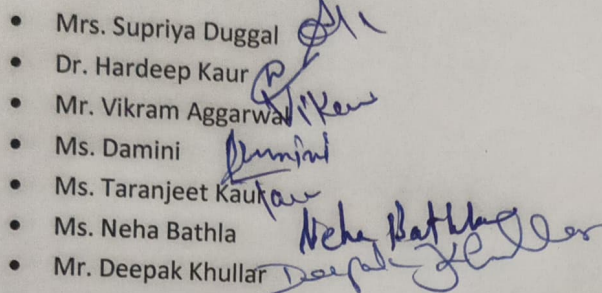 • Mrs. Supriya Duggal
• Dr. Hardeep Kaur
• Mr. Vikram Aggarwal Vikram
• Ms. Damini Damini
• Ms. Taranjeet Kaur
• Ms. Neha Bathla Neha Bathla
• Mr. Deepak Khullar Deepak Khullar